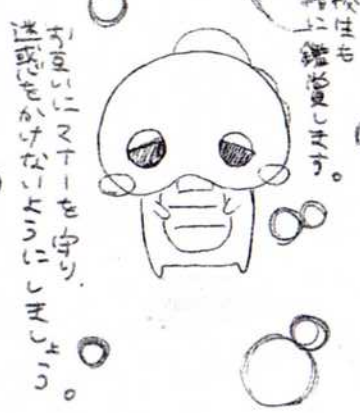 校生も
緒に鑑賞します。
お互いにマナーを守り、
迷惑をかけないようにしましょう。